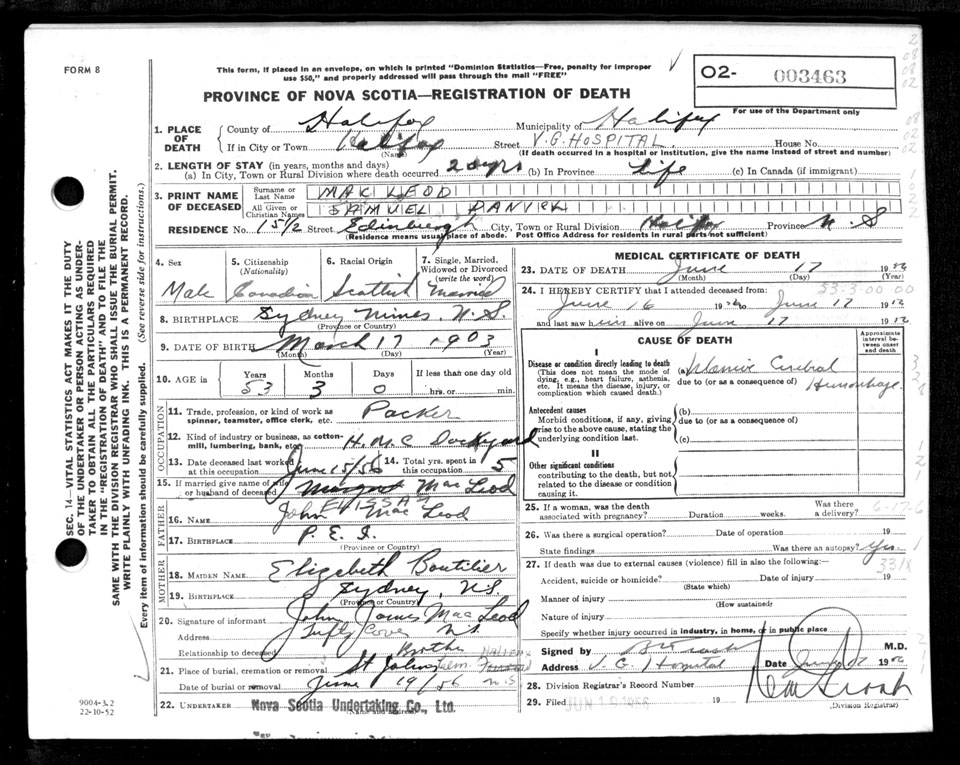 FORM 8
This form, if placed in an envelope, on which is printed "Dominion Statistics—Free, penalty for improper
use $50," and properly addressed will pass through the mail "FREE"
PROVINCE OF NOVA SCOTIA—REGISTRATION OF DEATH
02- 003463
For use of the Department only
1. PLACE OF DEATH
County of Halifax Municipality of Halifax
If in City or Town Halifax Street V.G. HOSPITAL House No.
(Name) (If death occurred in a hospital or institution, give the name instead of street and number)
2. LENGTH OF STAY (in years, months and days)
(a) In City, Town or Rural Division where death occurred (b) In Province Life (c) In Canada (if immigrant)
3. PRINT NAME OF DECEASED
Surname or Last Name MAC LEOD
All Given or Christian Names SAMUEL
RESIDENCE No. 151/2 Street Edinburgh City, Town or Rural Division Halifax Province N S
(Residence means usual place of abode. Post Office Address for residents in rural parts not sufficient)
4. Sex Male
5. Citizenship (Nationality) Canadian
6. Racial Origin Scottish
7. Single, Married, Widowed or Divorced (write the word) Married
8. BIRTHPLACE Sydney Mines, N.S.
(Province or Country)
9. DATE OF BIRTH March 17 1903
(Month) (Day) (Year)
10. AGE in Years Months Days If less than one day old
53 3 0 hrs. or min.
OCCUPATION
11. Trade, profession, or kind of work as spinner, teamster, office clerk, etc. Packer
12. Kind of industry or business, as cotton-mill, lumbering, bank, etc. H.M.C Dockyard
13. Date deceased last worked at this occupation June 15/56
14. Total yrs. spent in this occupation 5
15. If married give name of wife or husband of deceased Margaret MacLeod
FATHER
16. NAME John MacLeod
17. BIRTHPLACE P.E.I.
(Province or Country)
MOTHER
18. MAIDEN NAME Elizabeth Boutilier
19. BIRTHPLACE Sydney, N.S.
(Province or Country)
20. Signature of informant John James MacLeod
Address Tufts Cove N.S.
Relationship to deceased Brother
21. Place of burial, cremation or removal St Johns Cem. HALIFAX N.S
Date of burial or removal June 19/56
22. UNDERTAKER Nova Scotia Undertaking Co., Ltd.
(Name and address)
MEDICAL CERTIFICATE OF DEATH
23. DATE OF DEATH June 17 1956
(Month) (Day) (Year)
24. I HEREBY CERTIFY that I attended deceased from:
53-3-00 00
June 16 1956 to June 17 1956
and last saw him alive on June 17 1956
CAUSE OF DEATH
Approximate interval between onset and death
I
Disease or condition directly leading to death
(This does not mean the mode of dying, e.g., heart failure, asthenia, etc. It means the disease, injury, or complication which caused death.)
(a) Massive Cerebral
due to (or as a consequence of) Hemorrhage
Antecedent causes
Morbid conditions, if any, giving rise to the above cause, stating the underlying condition last.
(b)
due to (or as a consequence of)
(c)
II
Other significant conditions
contributing to the death, but not related to the disease or condition causing it.
25. If a woman, was the death associated with pregnancy? Duration weeks. Was there a delivery? 6-17-6
26. Was there a surgical operation? Date of operation 19
State findings Was there an autopsy? Yes
27. If death was due to external causes (violence) fill in also the following:—
Accident, suicide or homicide? Date of injury 19
(State which)
Manner of injury
(How sustained)
Nature of injury
Specify whether injury occurred in industry, in home, or in public place
Signed by M.D.
Address V.G. Hospital Date 1956
28. Division Registrar's Record Number
29. Filed JUN 19 1956 19
(Division Registrar)
SEC. 14—VITAL STATISTICS ACT MAKES IT THE DUTY
OF THE UNDERTAKER OR PERSON ACTING AS UNDER-
TAKER TO OBTAIN ALL THE PARTICULARS REQUIRED
IN THE "REGISTRATION OF DEATH" AND TO FILE THE
SAME WITH THE DIVISION REGISTRAR WHO SHALL ISSUE THE BURIAL PERMIT.
WRITE PLAINLY WITH UNFADING INK. THIS IS A PERMANENT RECORD.
Every item of information should be carefully supplied. (See reverse side for instructions.)
9004-3.2
22-10-52